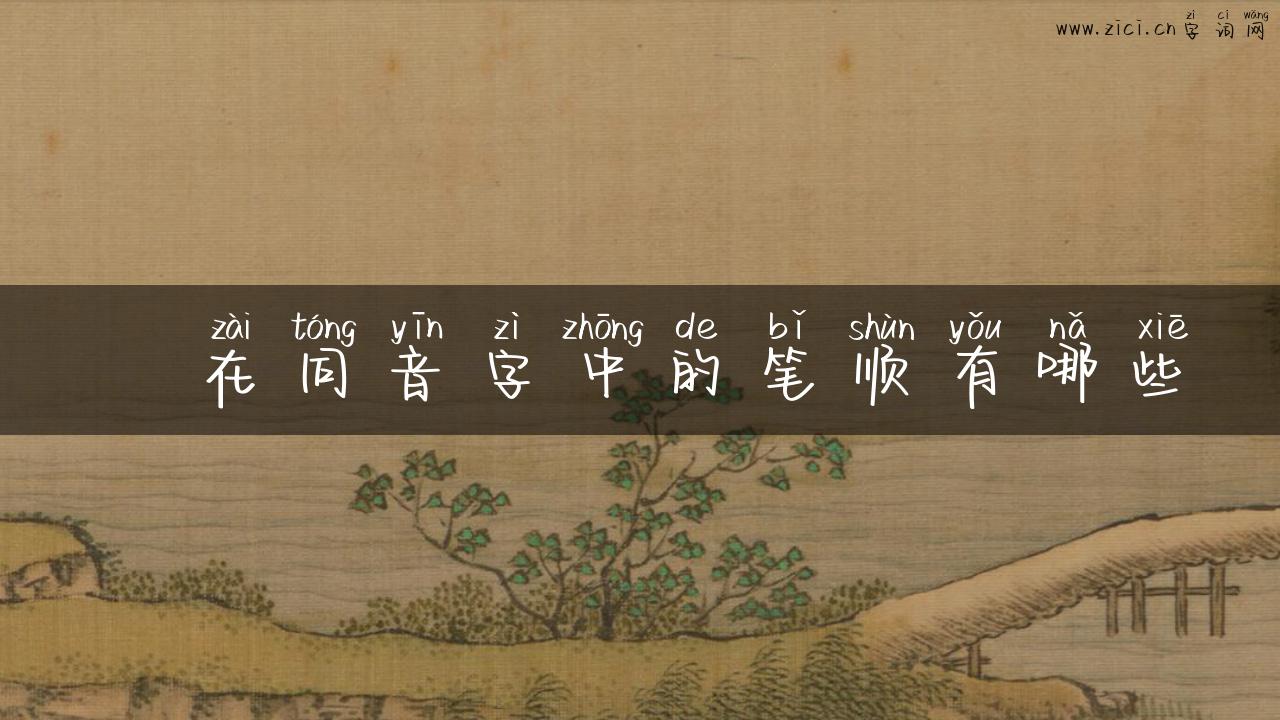 zì cí wǎng
www.zici.cn 字 词 网
zài tóng yīn zì zhōng de bǐ shùn yǒu nǎ xiē
在 同 音 字 中 的 笔 顺 有 哪 些